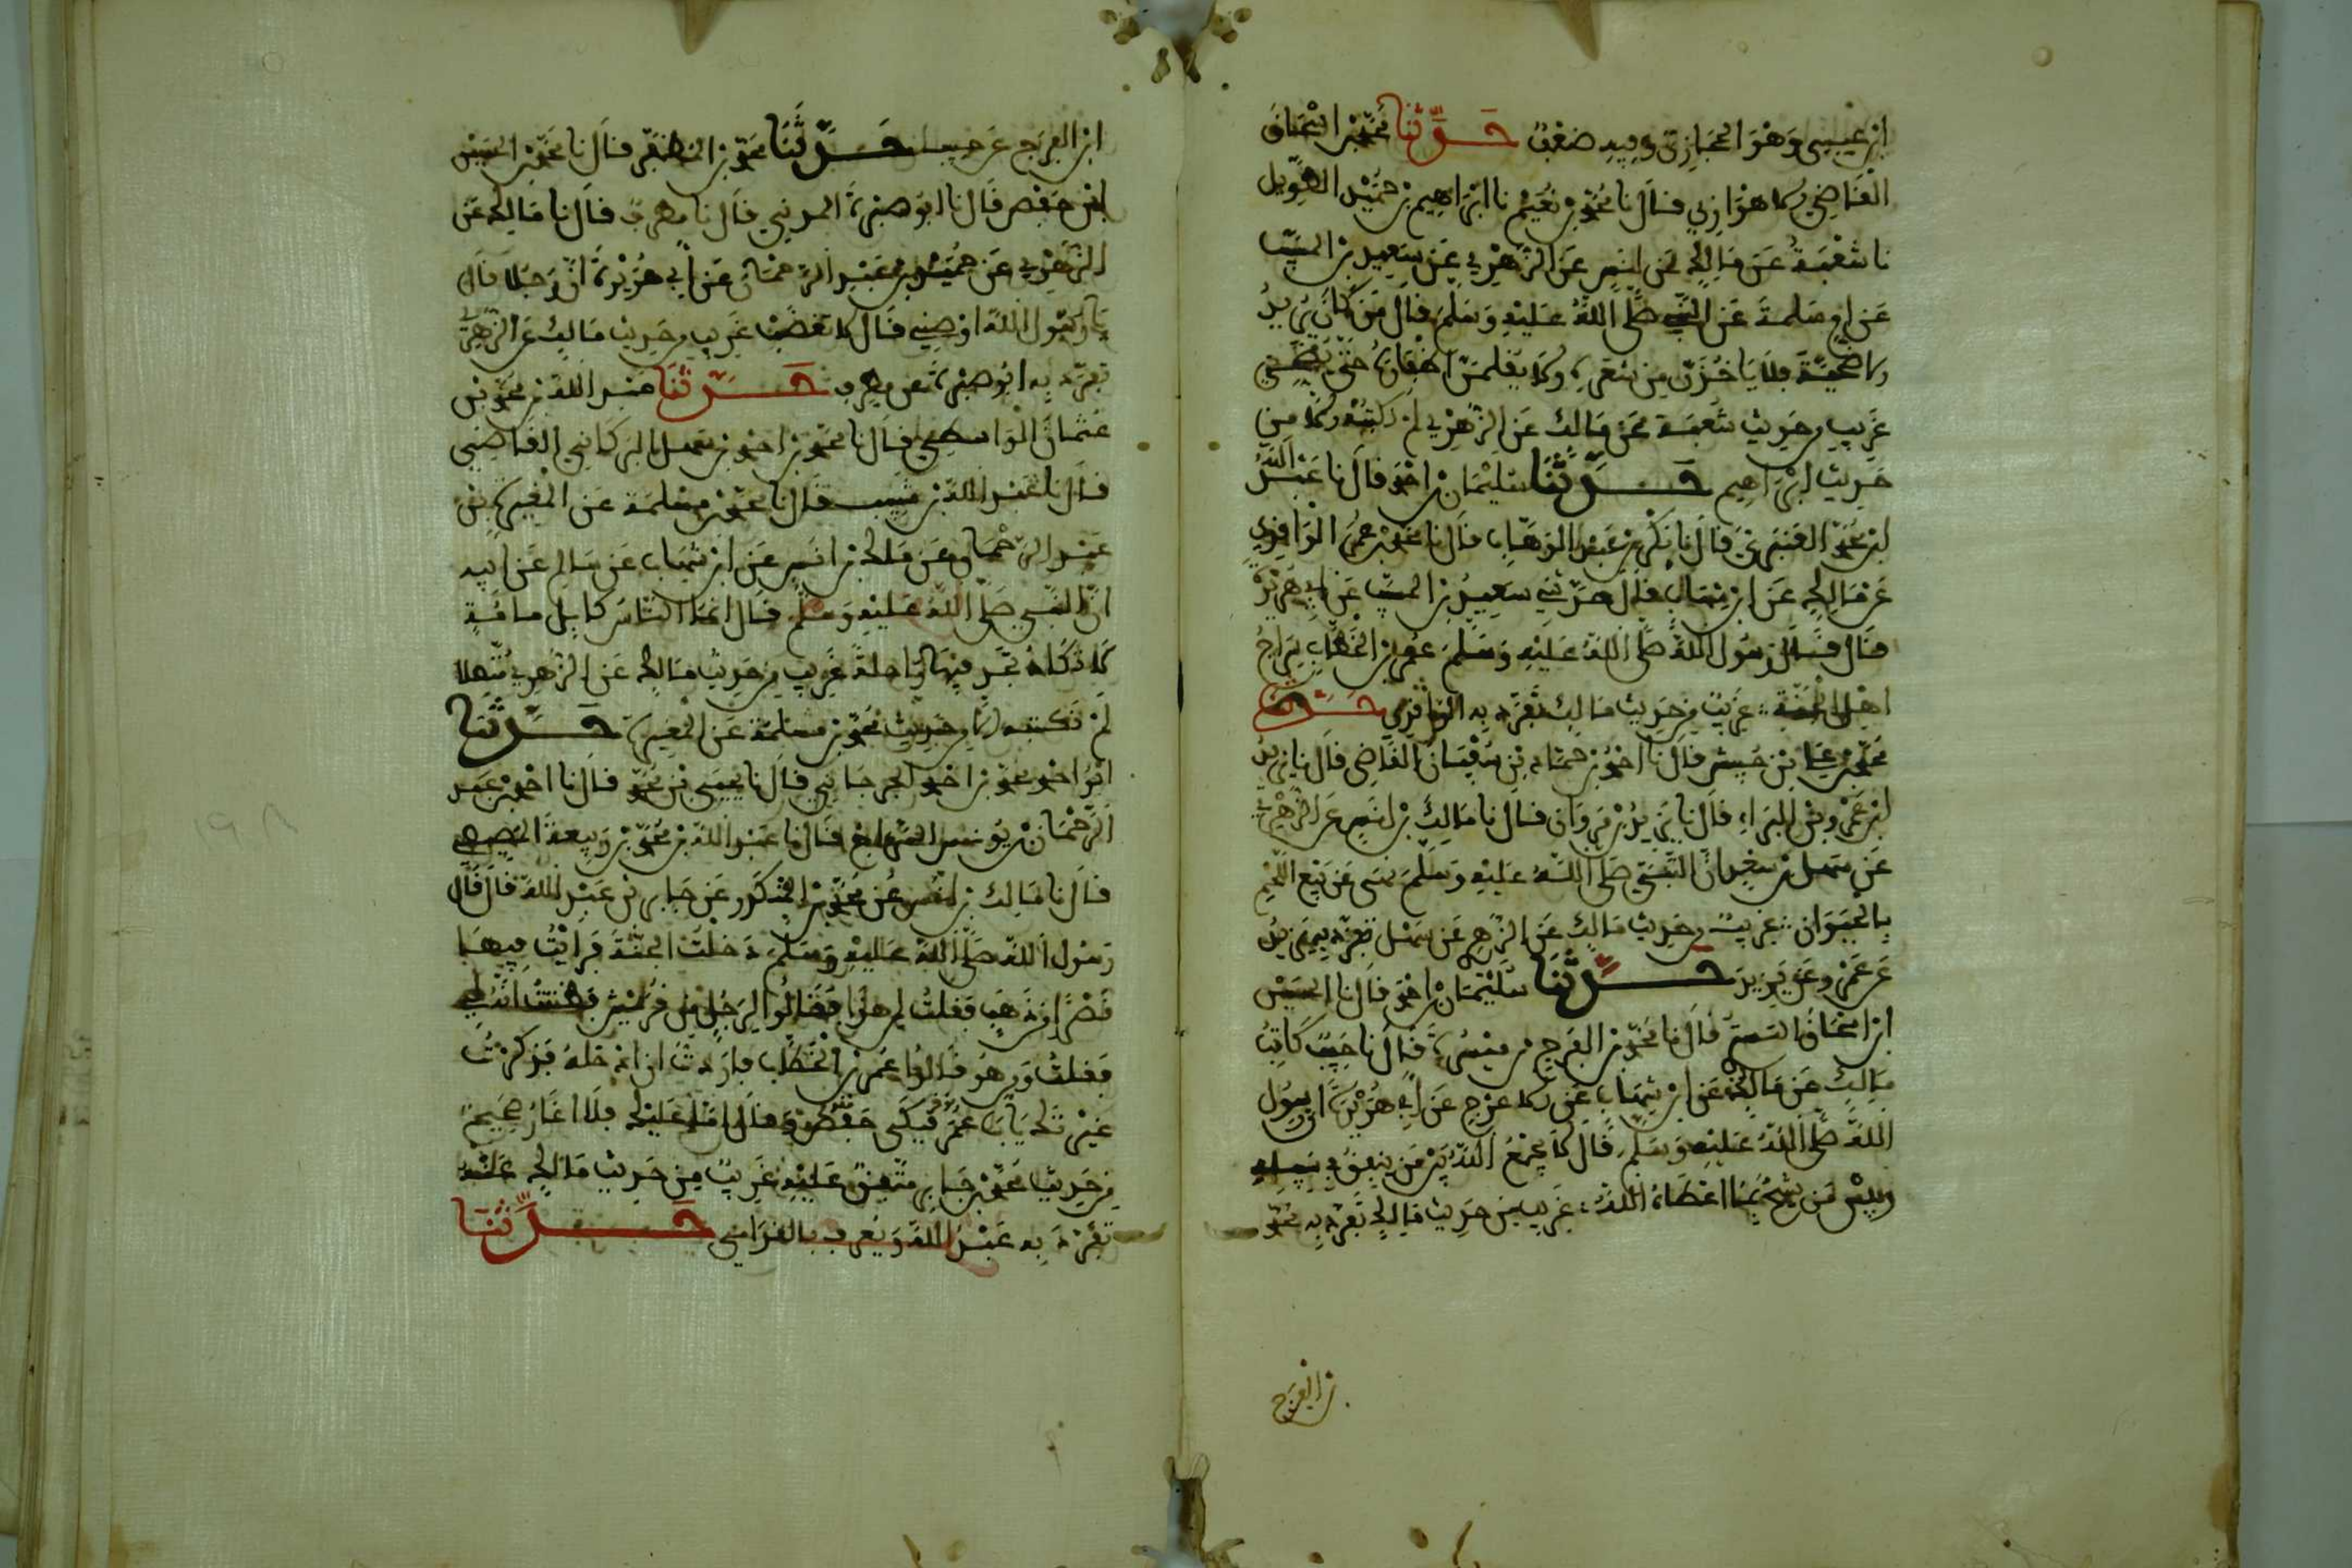 ابن عيسى وهو الحجازي وفيه ضعف حدثنا محمد بن اسحاق
القاضي بالاهوازي قال نا محمد بن نعيم نا ابراهيم بن حميد الطويل
نا شعبة عن مالك بن انس عن الزهري عن سعيد بن المسيب
عن ام سلمة عن النبي صلى الله عليه وسلم قال من كان يريد
الاضحية فلا ياخذن من شعره ولا يقلمن اظفاره حتى يضحي
غريب من حديث شعبة عن مالك عن الزهري لم نكتبه الا من
حديث ابراهيم حدثنا سليمان بن احمد قال نا عبد الله
ابن محمد العمري قال نا بكر بن عبد الوهاب قال نا محمد بن عمر الواقدي
عن مالك عن ابن شهاب قال حدثني سعيد بن المسيب عن ابي هريرة
قال قال رسول الله صلى الله عليه وسلم عمر بن الخطاب سراج
اهل الجنة غريب من حديث مالك تفرد به الواقدي حدثنا
محمد بن علي بن حبيش قال نا احمد بن حماد بن سفيان القاضي قال نا يزيد
ابن عمرو بن البراء قال نا يزيد بن مروان قال نا مالك بن انس عن الزهري
عن سهل بن سعد ان النبي صلى الله عليه وسلم نهى عن بيع اللحم
بالحيوان غريب من حديث مالك عن الزهري عن سهل تفرد به يزيد
عن عمرو عن يزيد حدثنا سليمان بن احمد قال نا الحسين
ابن اسحاق التستري قال نا محمد بن الفرج بن ميسرة قال نا حبيب كاتب
مالك عن مالك عن ابن شهاب عن الاعرج عن ابي هريرة ان رسول
الله صلى الله عليه وسلم قال لا يجمع الله بين من ينفق في سبيله
وبين من يشح بما اعطاه الله غريب من حديث مالك تفرد به محمد
بن الفرج
ابن الفرج عن حبيب حدثنا محمد بن المظفر قال نا محمد بن الحسين
ابن حفص قال نا ابو صبرة المدني قال نا مطرف قال نا مالك عن
الزهري عن حميد بن عبد الرحمان عن ابي هريرة ان رجلا قال
يا رسول الله اوصني قال لا تغضب غريب من حديث مالك عن الزهري
تفرد به ابو صبرة عن مطرف حدثنا عبد الله بن محمد بن
عثمان الواسطي قال نا محمد بن احمد بن سهل البركاني القاضي
قال نا عبد الله بن شبيب قال نا محمد بن مسلمة عن المغيرة بن
عبد الرحمان عن مالك بن انس عن ابن شهاب عن سالم عن ابيه
ان النبي صلى الله عليه وسلم قال انما الناس كابل مائة
لا تكاد تجد فيها راحلة غريب من حديث مالك عن الزهري متصلا
لم نكتبه الا من حديث محمد بن مسلمة عن المغيرة حدثنا
ابو احمد محمد بن احمد الجرجاني قال نا يحيى بن محمد قال نا احمد بن عبد
الرحمان بن يونس السراج قال نا عبد الله بن محمد بن ربيعة المصيصي
قال نا مالك بن انس عن محمد بن المنكدر عن جابر بن عبد الله قال قال
رسول الله صلى الله عليه وسلم دخلت الجنة فرايت فيها
قصرا من ذهب فقلت لمن هذا فقالوا لرجل من قريش فظننت اني هو
فقلت ومن هو قالوا عمر بن الخطاب فاردت ان ادخله فذكرت
غيرتك يا با عمر فبكى عمر وقال امثلي عليك فلا اغار صحيح
من حديث محمد بن جابر متفق عليه غريب من حديث مالك عنه
تفرد به عبد الله ويعرف بالقدامي حدثنا